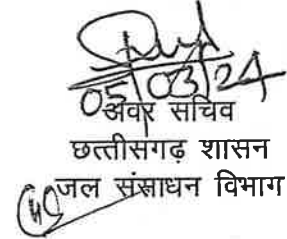 05/03/24
अवर सचिव
छत्तीसगढ़ शासन
जल संसाधन विभाग